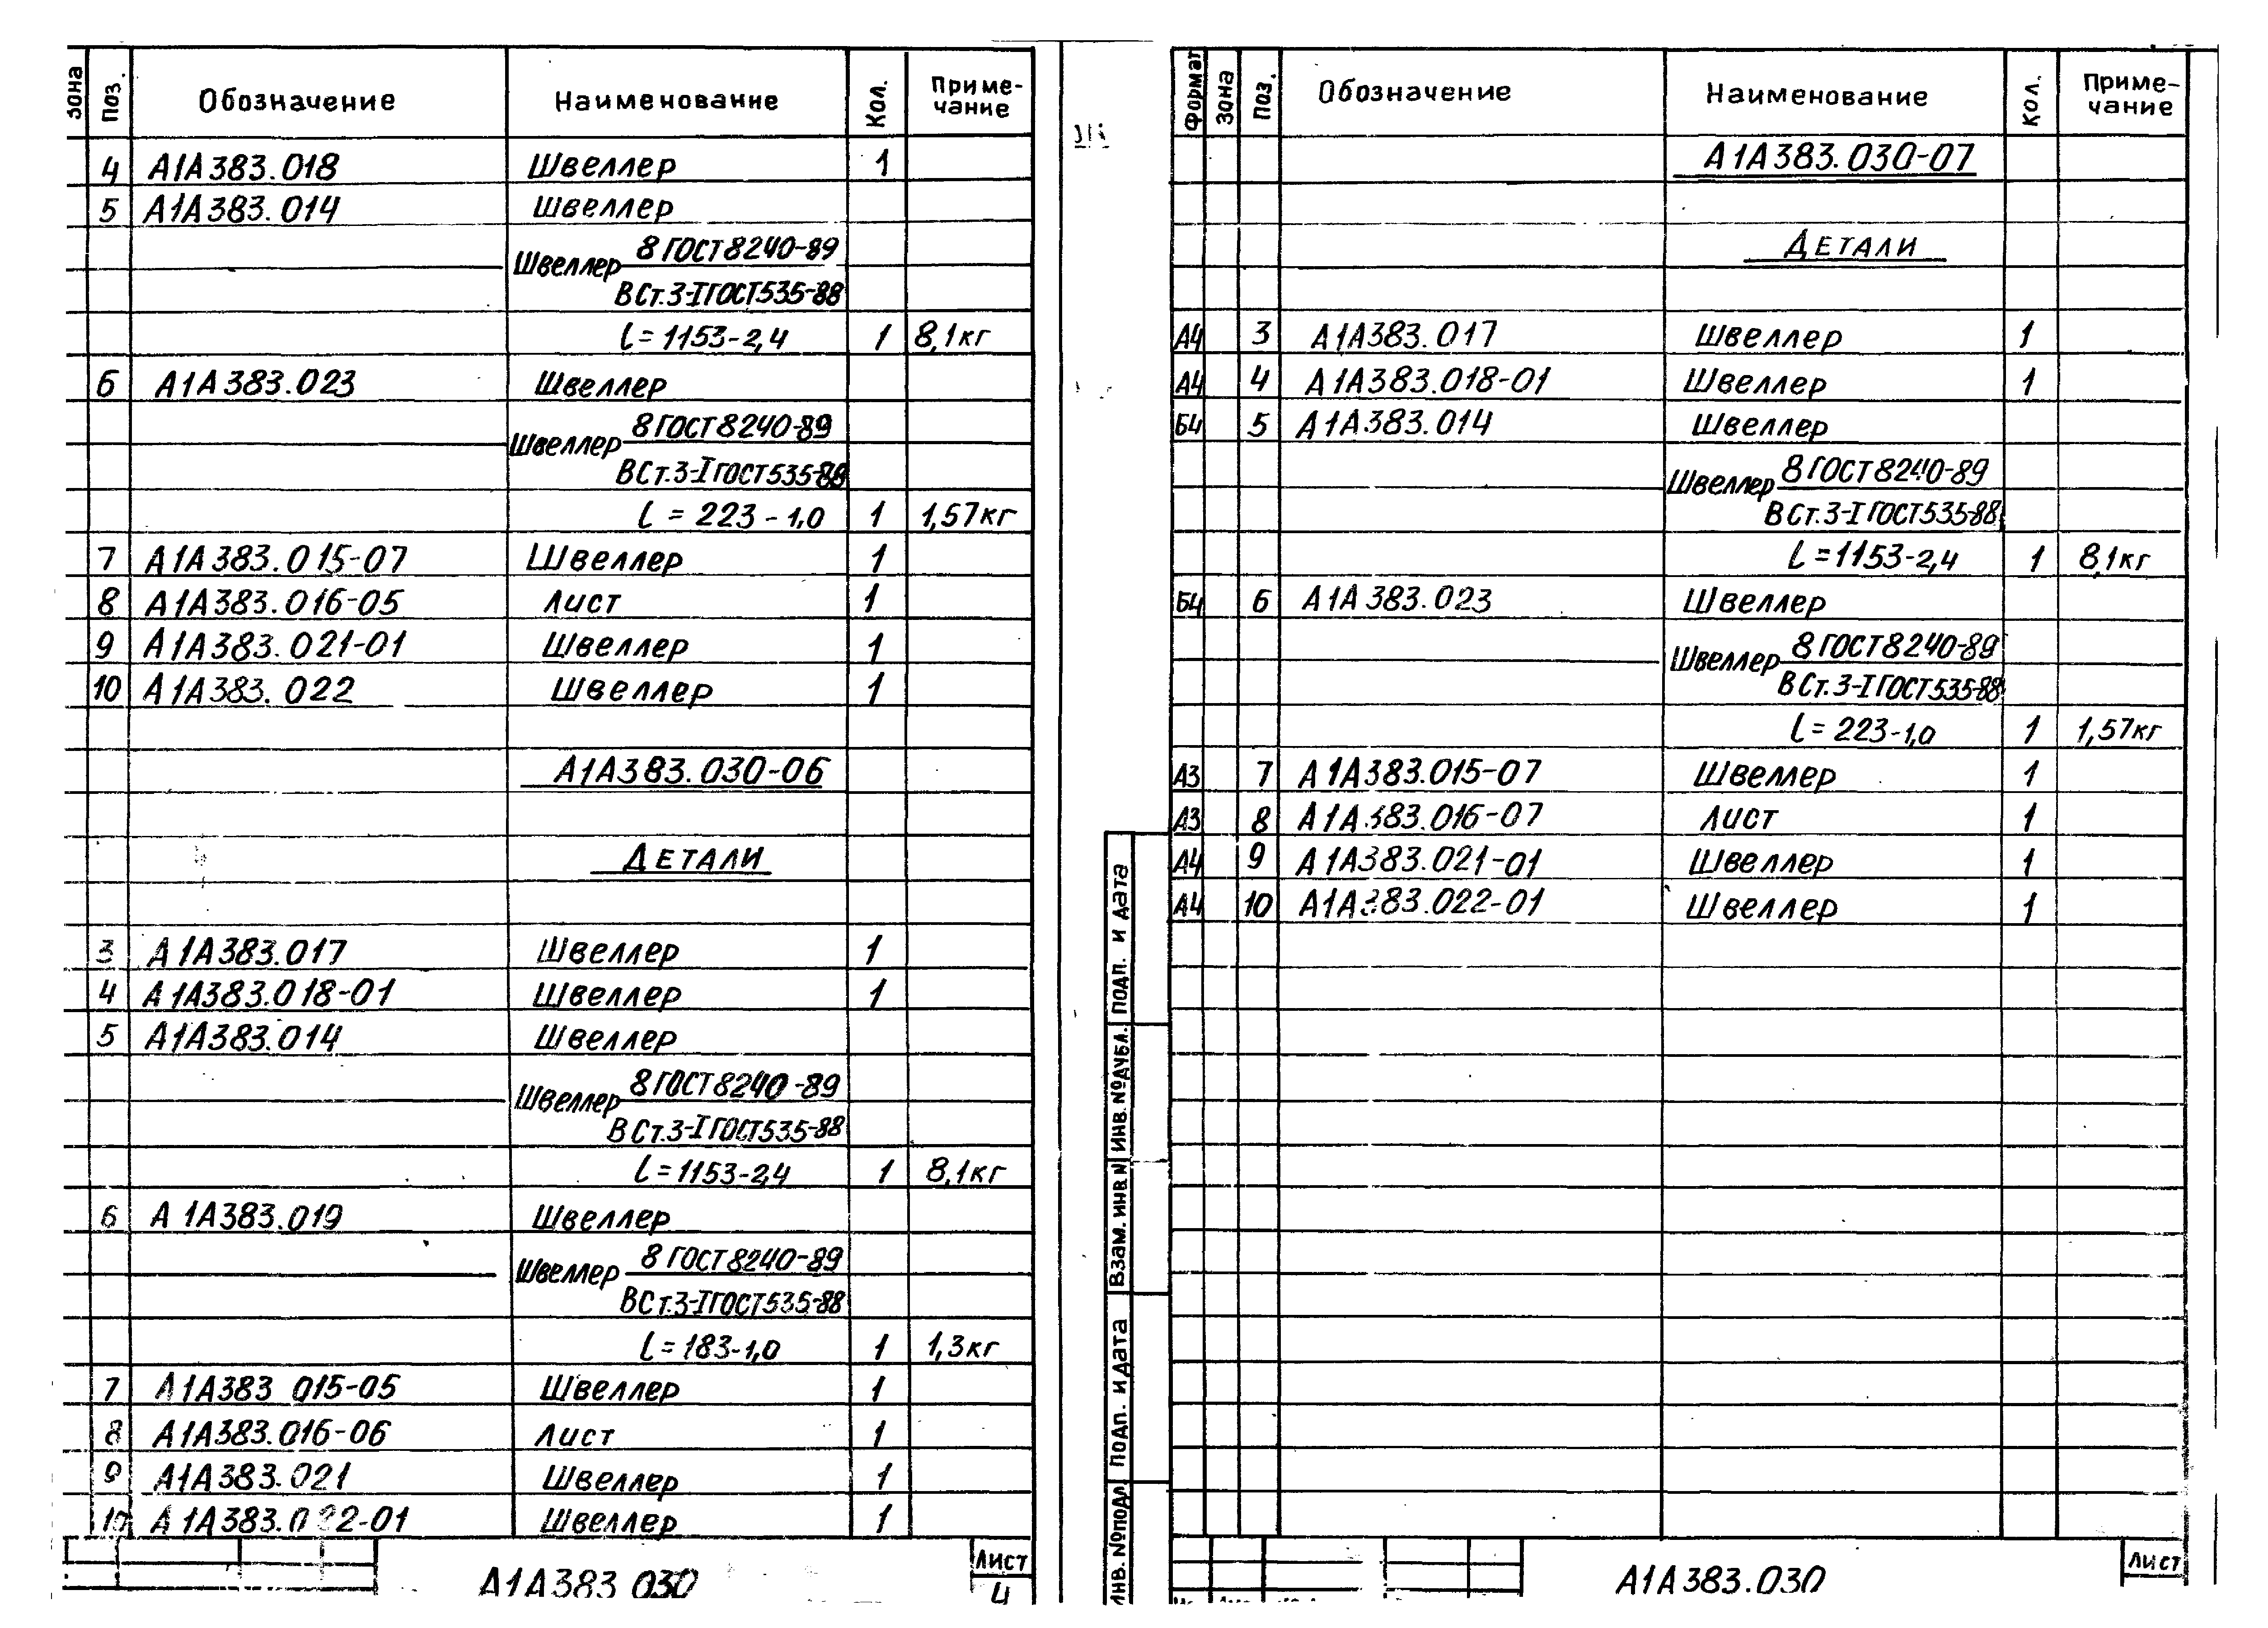 Зона Поз. Обозначение Наименование Кол. Приме-
чание
4 А1А383.018 Швеллер 1
5 А1А383.014 Швеллер
Швеллер 8 ГОСТ 8240-89
ВСт.3-I ГОСТ 535-88
l = 1153-2,4 1 8,1кг
6 А1А383.023 Швеллер
Швеллер 8 ГОСТ 8240-89
ВСт.3-I ГОСТ 535-88
l = 223-1,0 1 1,57кг
7 А1А383.015-07 Швеллер 1
8 А1А383.016-05 Лист 1
9 А1А383.021-01 Швеллер 1
10 А1А383.022 Швеллер 1
А1А383.030-06
Детали
3 А1А383.017 Швеллер 1
4 А1А383.018-01 Швеллер 1
5 А1А383.014 Швеллер
Швеллер 8 ГОСТ 8240-89
ВСт.3-I ГОСТ 535-88
l = 1153-2,4 1 8,1кг
6 А1А383.019 Швеллер
Швеллер 8 ГОСТ 8240-89
ВСт.3-I ГОСТ 535-88
l = 183-1,0 1 1,3кг
7 А1А383 015-05 Швеллер 1
8 А1А383.016-06 Лист 1
9 А1А383.021 Швеллер 1
10 А1А383.022-01 Швеллер 1
А1А383 030
Лист
4
Формат Зона Поз. Обозначение Наименование Кол. Приме-
чание
А1А383.030-07
Детали
А4 3 А1А383.017 Швеллер 1
А4 4 А1А383.018-01 Швеллер 1
Б4 5 А1А383.014 Швеллер
Швеллер 8 ГОСТ 8240-89
ВСт.3-I ГОСТ 535-88
l = 1153-2,4 1 8,1кг
Б4 6 А1А383.023 Швеллер
Швеллер 8 ГОСТ 8240-89
ВСт.3-I ГОСТ 535-88
l = 223-1,0 1 1,57кг
А3 7 А1А383.015-07 Швеллер 1
А3 8 А1А.383.016-07 Лист 1
А4 9 А1А383.021-01 Швеллер 1
А4 10 А1А383.022-01 Швеллер 1
Подп. и дата
Инв. № дубл.
Взам. инв №
Подп. и дата
Инв. № подл
А1А383.030
Лист